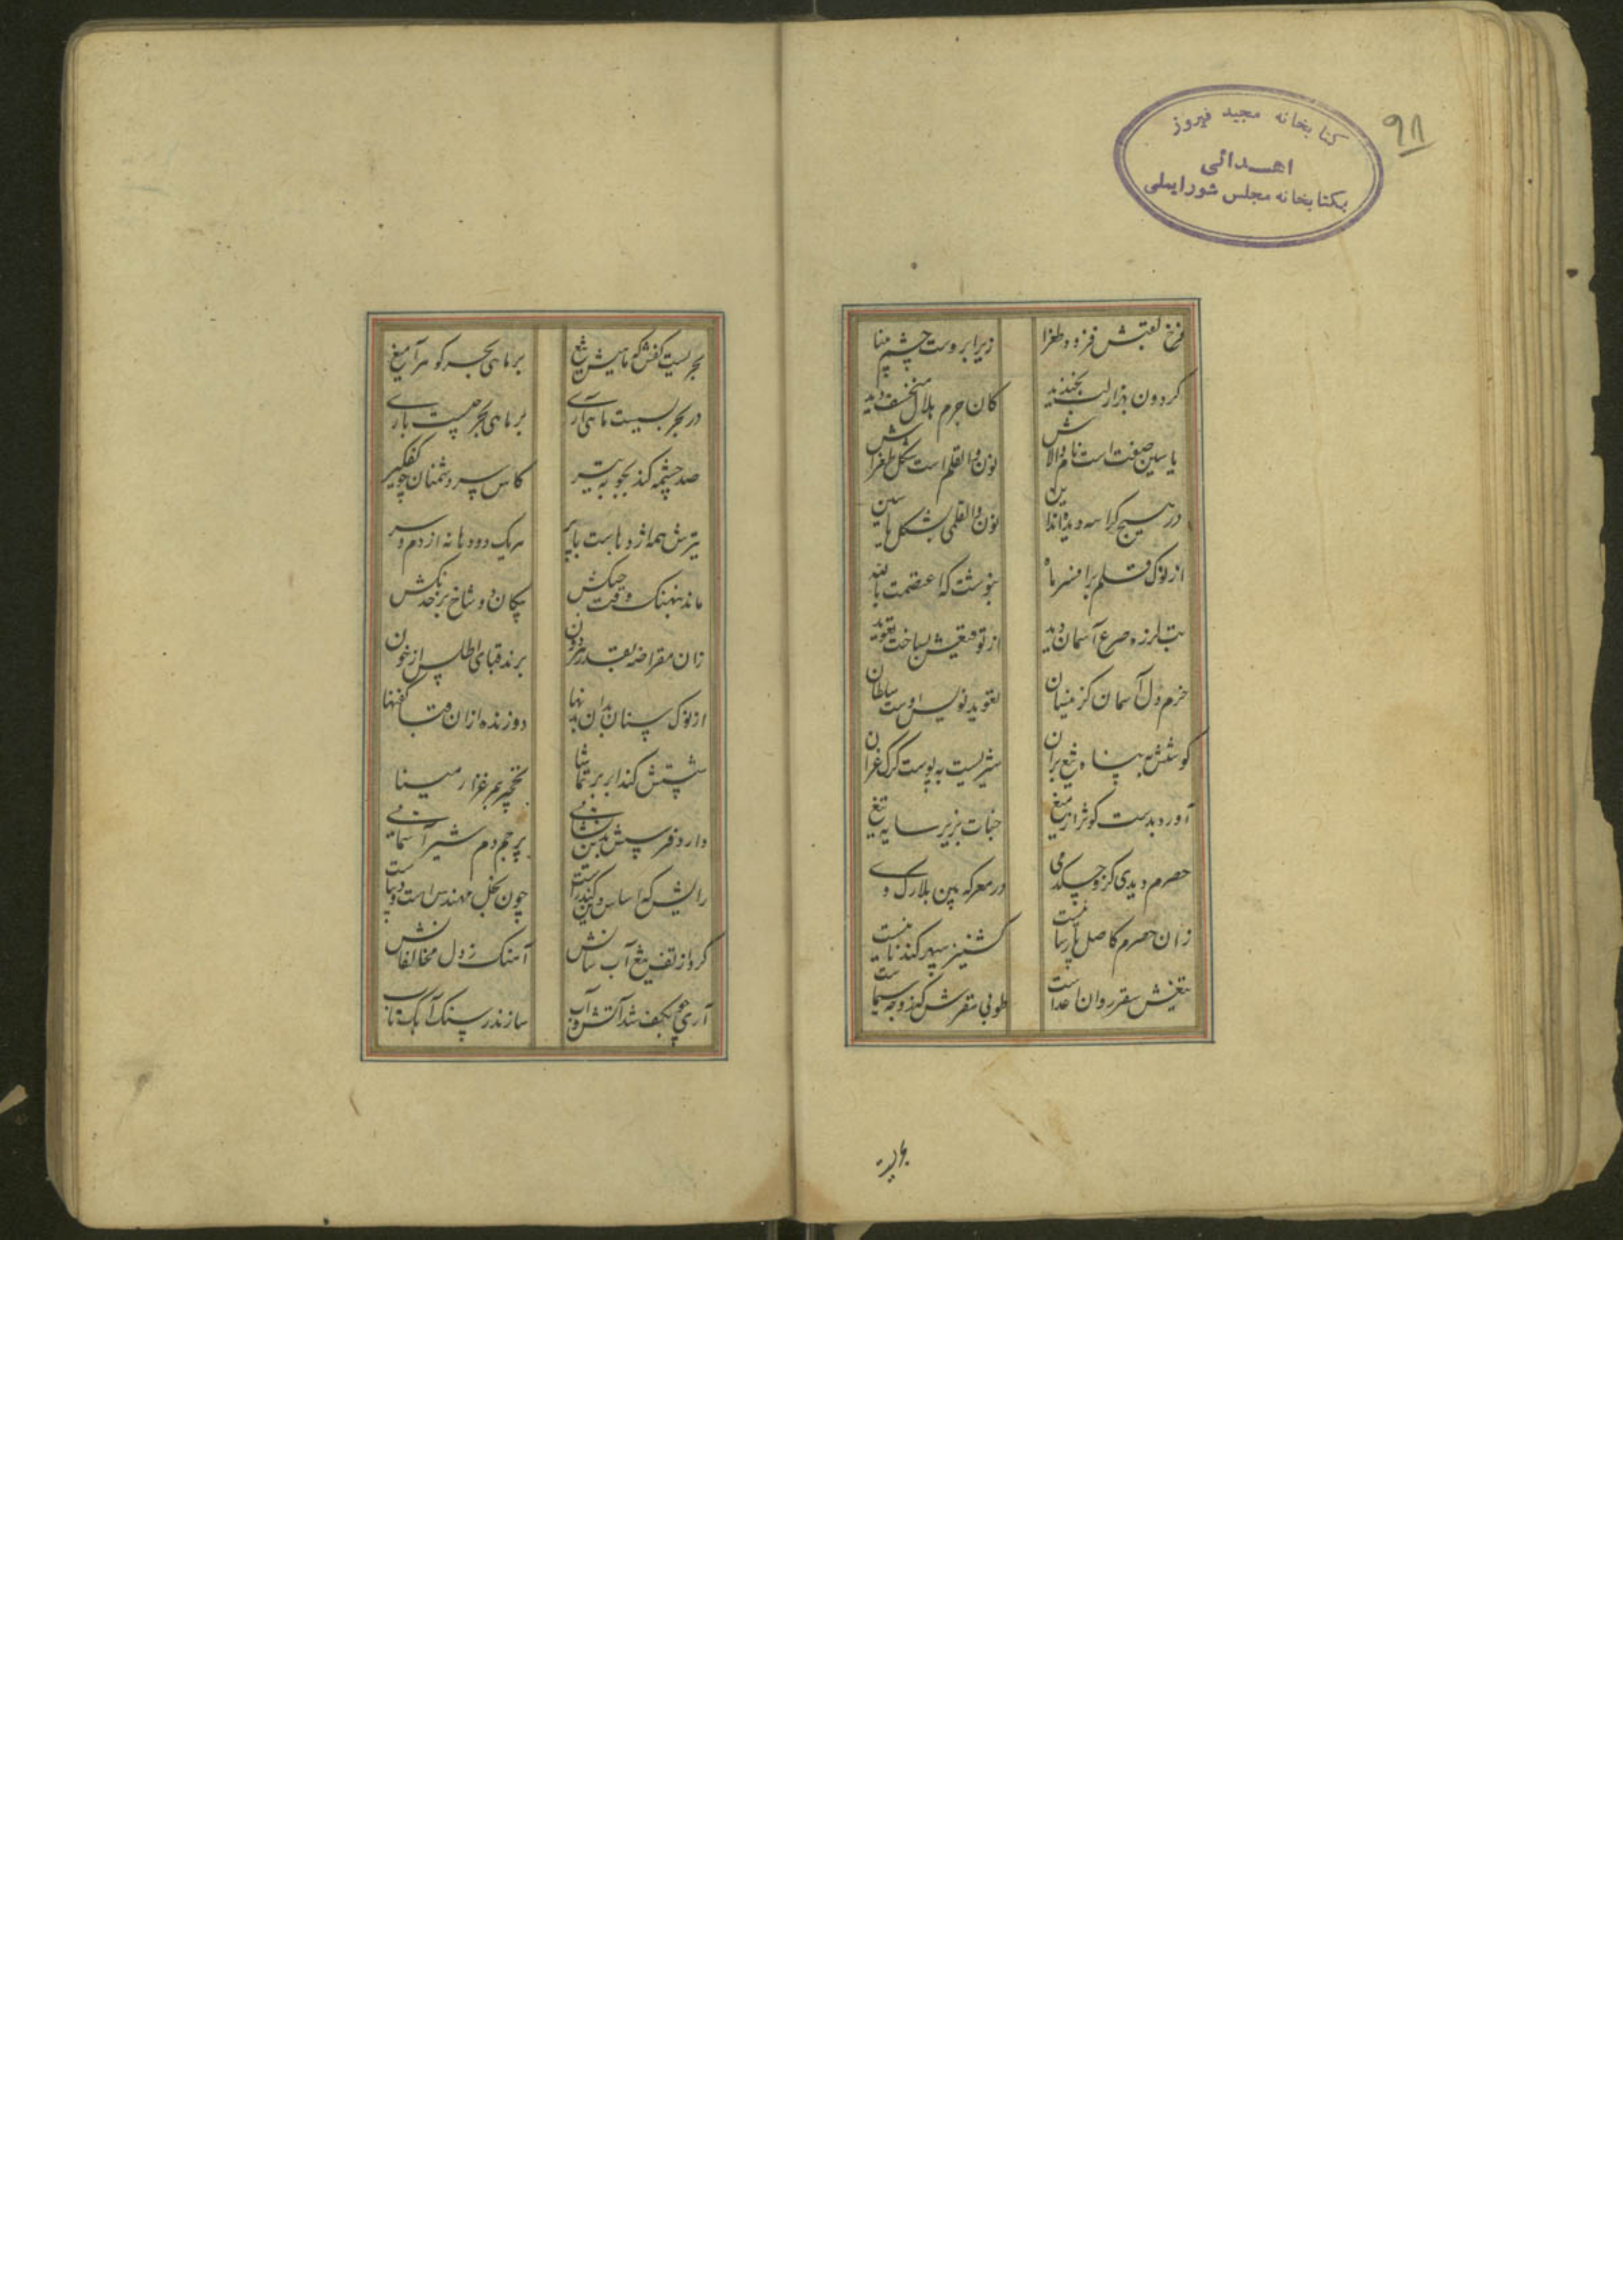 کتابخانه مجید فیروز
اهدائی
بکتابخانه مجلس شورایملی
۹۸
فرخ لقبش فزود طغرا زیر ابروست چشم بینا
گردون هزار لب بخندید کان جرم هلال منخسف دید
یاسین صفت است نام والاش نون والقلم است شکل طغراش
در هیچ کراسه دیده‌اند این نون والقلمی بشکل یاسین
از نوک قلم برافسر ماه بنوشت که اعتصمت بالله
تب لرزه و صرع آسمان دید از توقیعش بساخت تعویذ
خرم دل آسمان کز مینسان تعویذ نویس اوست سلطان
کوشش به پناه تیغ بران شیریست به پوست کرک غران
آورد بدست کوثر از میغ جنات بزیر سایه تیغ
حصرم دیدی کزو چکد می در معرکه بین بلارک وی
زان حصرم کاصل پارساییست کشنیز سپهر کند نابیست
تیغش سقر روان اعداست طوبی سقرش کنند وجه سیماست
بحریست
بحریست کفش که ماهیش تیغ بر ماهی بحر گوهر آمیغ
در بحر بسیست ماهی آری بر ماهی بحر چیست باری
صد چشمه کند بجوبه تیر کاس سر دشمنان چو کفگیر
تیرش همه اژدهاست با پر هر یک دو دهانه از دم و سر
ماند بنهنگ وقت جنگش پیکان دو شاخ بر خدنگش
زان مقراضه بقدر هر دون برند قبای اطلس از خون
از نوک سنان بدان بدنها دوزنده از آن قبا کفنها
شستش کند ار بره تماشا نخچیر بمرغزار مینا
دارد فرسش بدنب نشانی پرچم دم شیر آسمانی
رایش که اساس دین کند راست چون نخل مهندس است و بیناست
گر از تف تیغ آب سانش آهنگ ز دل مخالفانش
آری چو بکف شد آتش و آب سازند ز سنگ آهک ناب